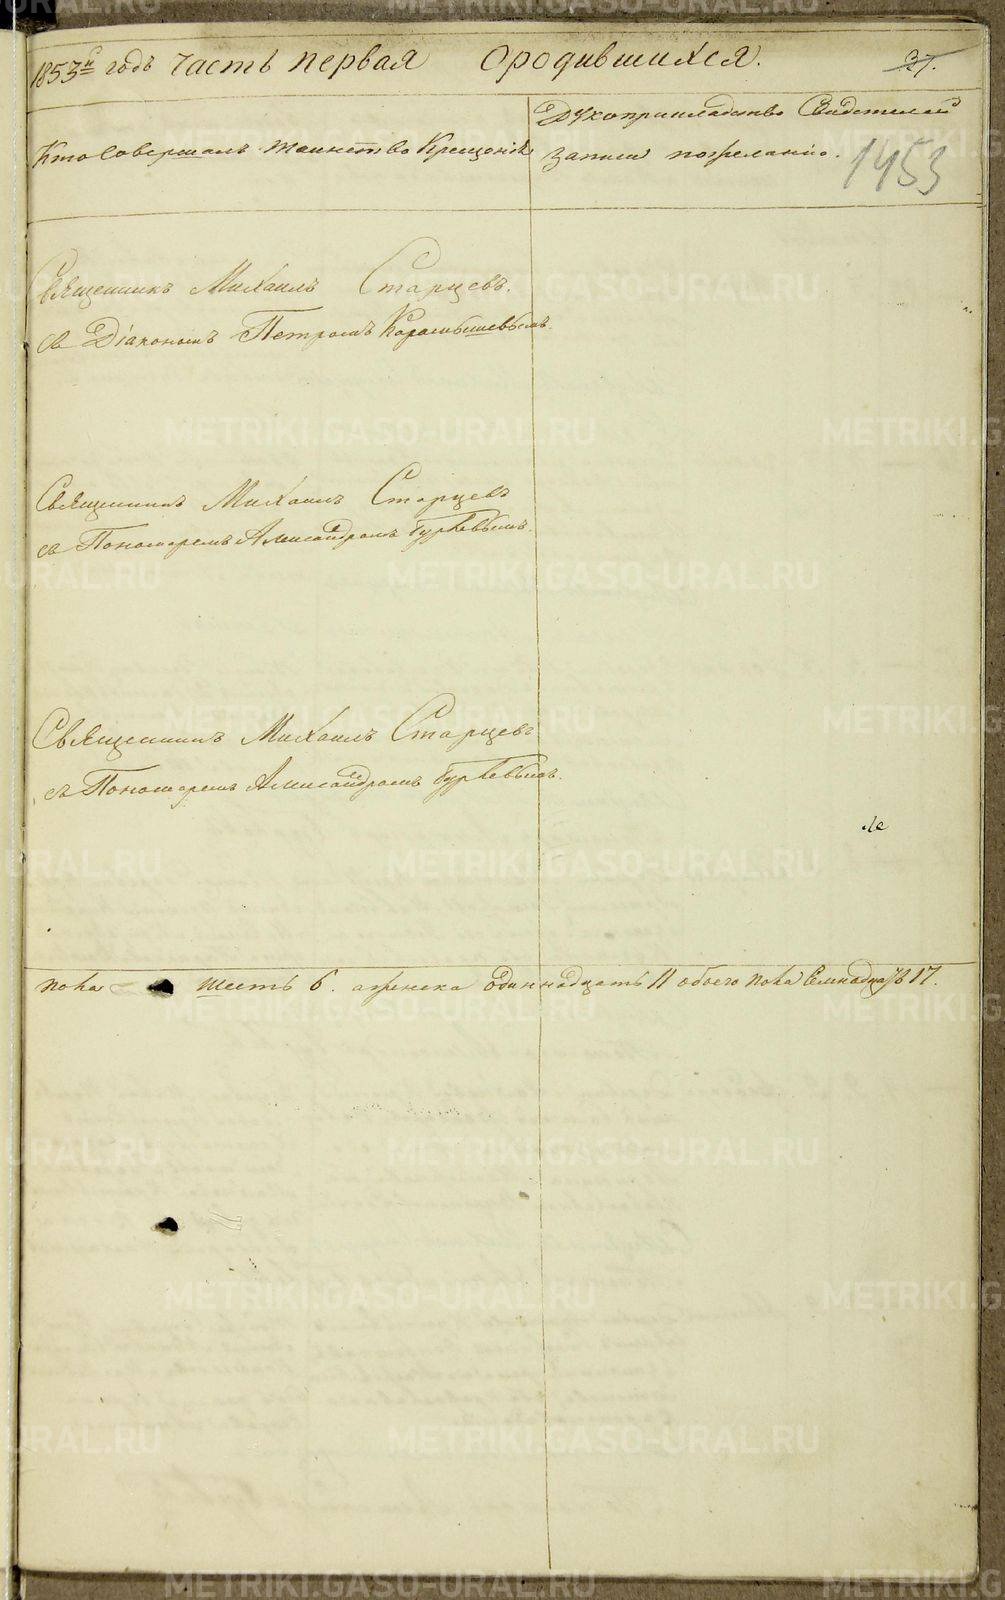 1853й годъ часть первая ородившихся. 27.
Кто Совершалъ таинство Крещенія
Рукоприкладство Свидетелей
записи пожеланію. 1453
Священникъ Михаилъ Старцевъ.
съ Діакономъ Петромъ
Священникъ Михаилъ Старцевъ
съ Пономаремъ Александромъ Гуревымъ.
Священникъ Михаилъ Старцевъ
съ Пономаремъ Александромъ Гуревымъ.
пола шесть 6. аженска одиннадцать 11 обоего пола Семнадцать 17.
METRIKI.GASO-URAL.RU